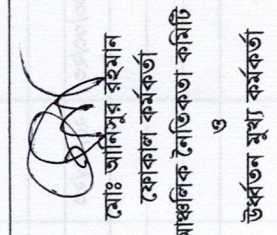 মোঃ আনিসুর রহমান
ফোকাল কর্মকর্তা
আঞ্চলিক নৈতিকতা কমিটি
ও
উর্ধ্বতন মুখ্য কর্মকর্তা